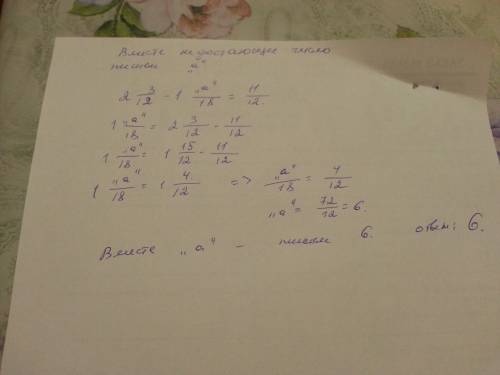 Вместо недостающее число
пишем „а"
2 3/12 - 1 „а"/18 = 11/12.
1 „а"/18 = 2 3/12 - 11/12
1 „а"/18 = 1 15/12 - 11/12
1 „а"/18 = 1 4/12 => „а"/18 = 4/12
„а" = 72/12 = 6.
Вместо „а" - пишем 6. ответ: 6.